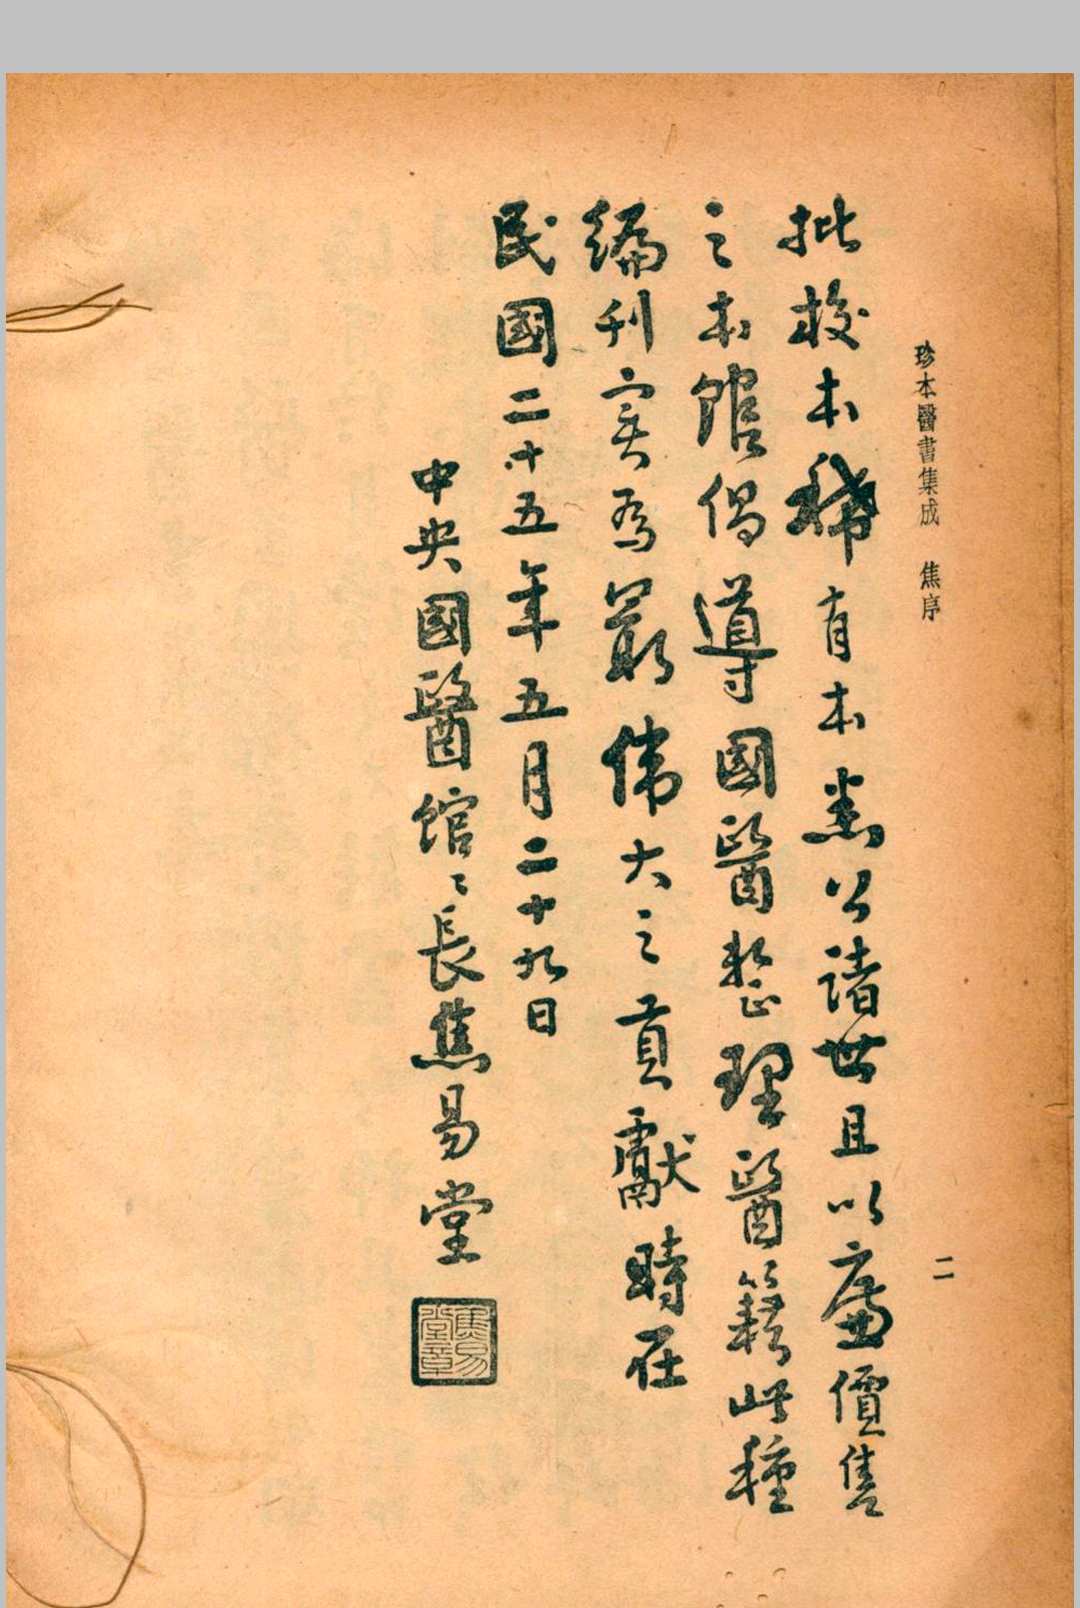 珍本醫書集成　焦序
二
批校本稀有本悉公諸世且以廉價售
之本館倡導國醫整理醫籍此種
編刊实為最偉大之貢獻時在
民國二十五年五月二十九日
中央國醫館〻長焦易堂
焦易堂章